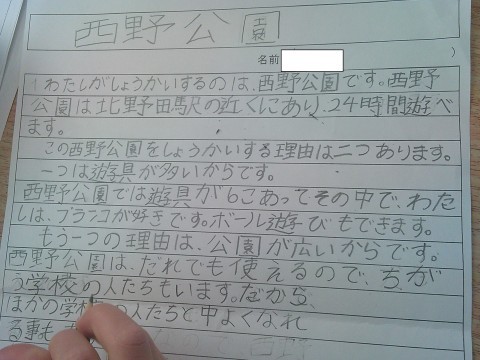 西野公園
名前
わたしがしょうかいするのは、西野公園です。西野
公園は北野田駅の近くにあり、24時間遊べ
ます。
この西野公園をしょうかいする理由は二つあります。
一つは遊具が多いからです。
西野公園では遊具が6こあってその中で、わた
しは、ブランコが好きです。ボール遊びもできます。
もう一つの理由は、公園が広いからです。
西野公園は、だれでも使えるので、ちが
う学校の人たちもいます。だから、
ほかの学校の人たちと中よくなれ
る事も